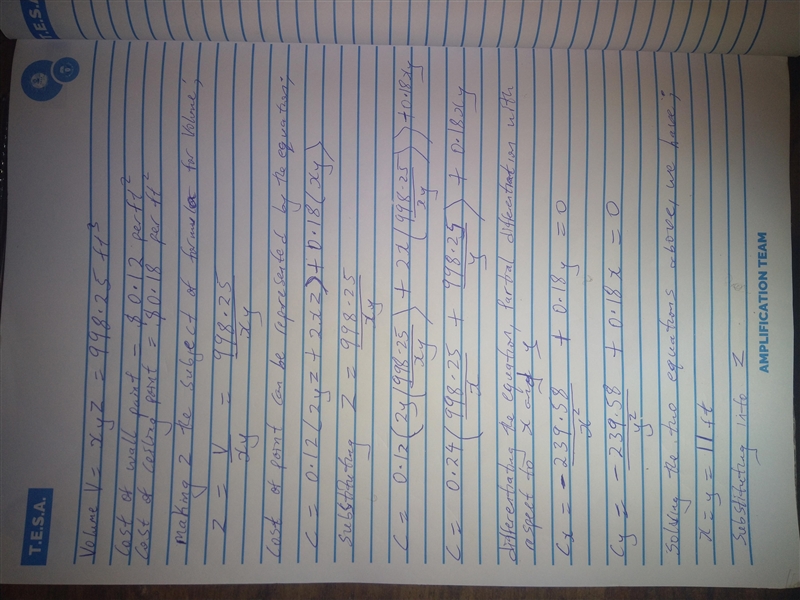 T.E.S.A.
Volume V = xyz = 998.25 ft³
Cost of wall paint = $0.12 per ft²
Cost of ceiling paint = $0.18 per ft²
Making z the subject of formula for Volume;
z = V/xy = 998.25/xy
Cost of paint can be represented by the equation;
C = 0.12(2yz + 2xz) + 0.18(xy)
Substituting z = 998.25/xy
C = 0.12(2y(998.25/xy) + 2x(998.25/xy)) + 0.18xy
C = 0.24(998.25/x + 998.25/y) + 0.18xy
differentiating the equation, partial differentiation with
respect to x and y
Cx = -239.58/x² + 0.18y = 0
Cy = -239.58/y² + 0.18x = 0
Solving the two equations above, we have;
x = y = 11 ft
Substituting into z
AMPLIFICATION TEAM
T.E.S.A